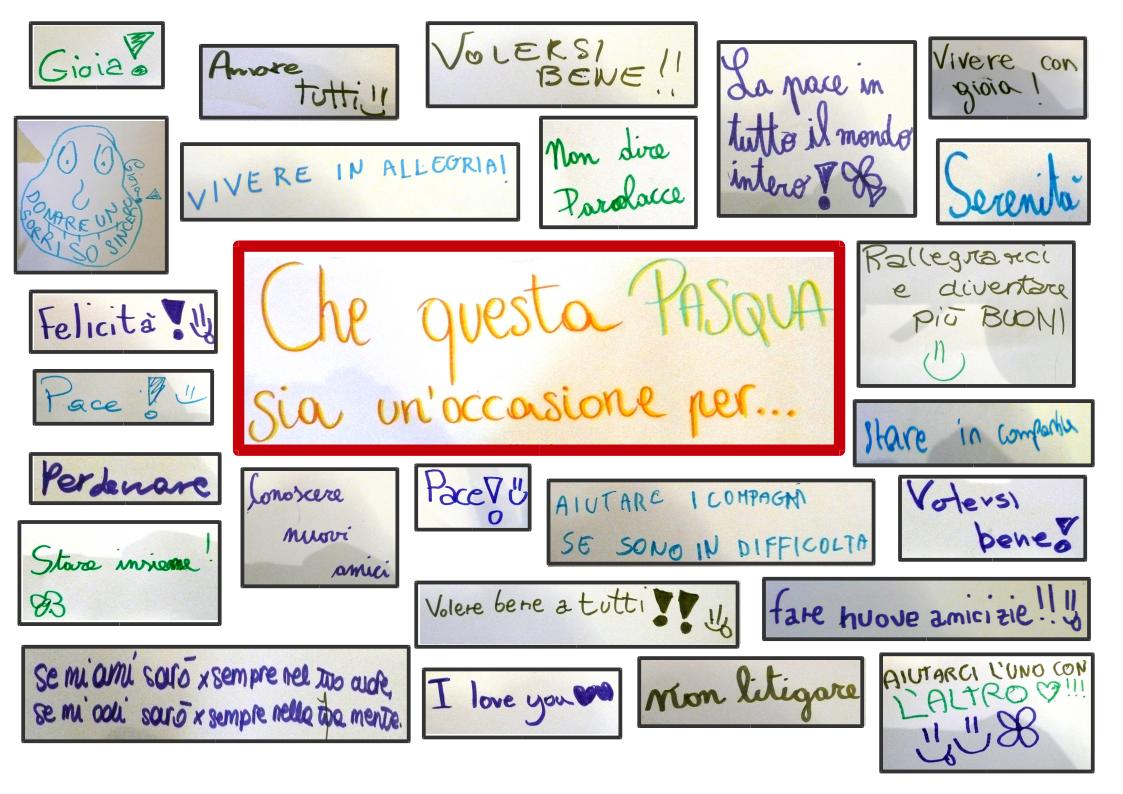 Gioia!
Amare
tutti!!
VOLERSI
BENE!!
La pace in
tutto il mondo
intero!
Vivere con
gioia!
DONARE UN
SORRISO SINCERO
Gioia!
VIVERE IN ALLEGRIA!
Non dire
Parolacce
Serenità
Felicità!
Che questa PASQUA
sia un'occasione per...
Rallegrarci
e diventare
più BUONI
Pace!
Stare in compagnia
Perdonare
Conoscere
nuovi
amici
Pace!
AIUTARE I COMPAGNI
SE SONO IN DIFFICOLTA
Volersi
bene!
Stare insieme!
Volere bene a tutti!!
fare nuove amicizie!!!
se mi ami sarò x sempre nel tuo cuore,
se mi odi sarò x sempre nella tua mente.
I love you
Non litigare
AIUTARCI L'UNO CON
L'ALTRO!!!